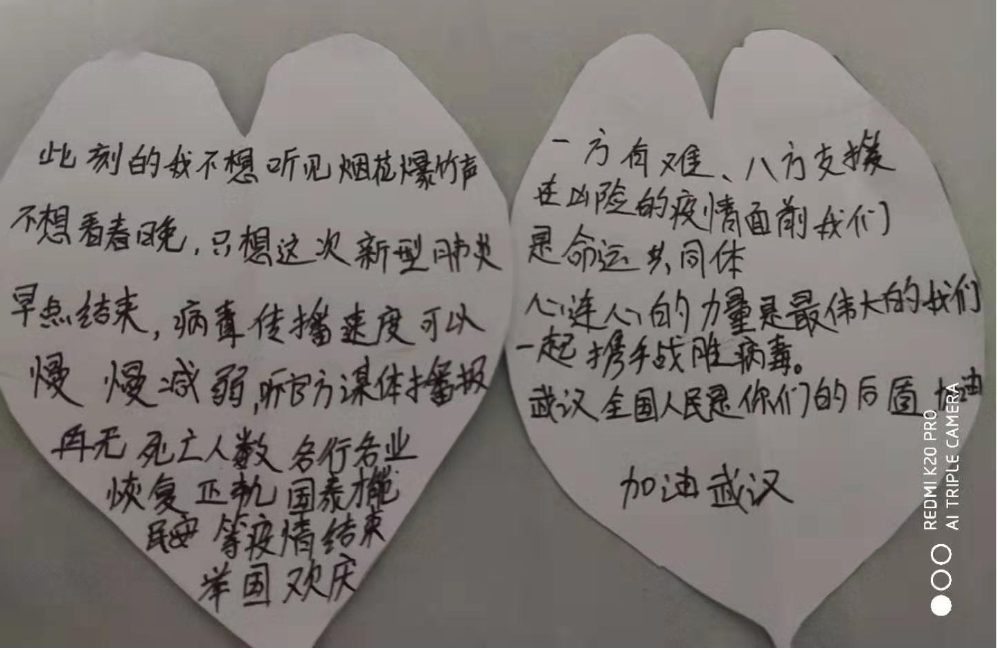 此刻的我不想听见烟花爆竹声
不想看春晚，只想这次新型肺炎
早点结束，病毒传播速度可以
慢慢减弱，听官方媒体播报
再无死亡人数各行各业
恢复正轨国泰
民安等疫情结束
举国欢庆
一方有难、八方支援
在凶险的疫情面前我们
是命运共同体
心连心的力量是最伟大的我们
一起携手战胜病毒。
武汉全国人民是你们的后盾加油
加油武汉
REDMI K20 PRO
AI TRIPLE CAMERA